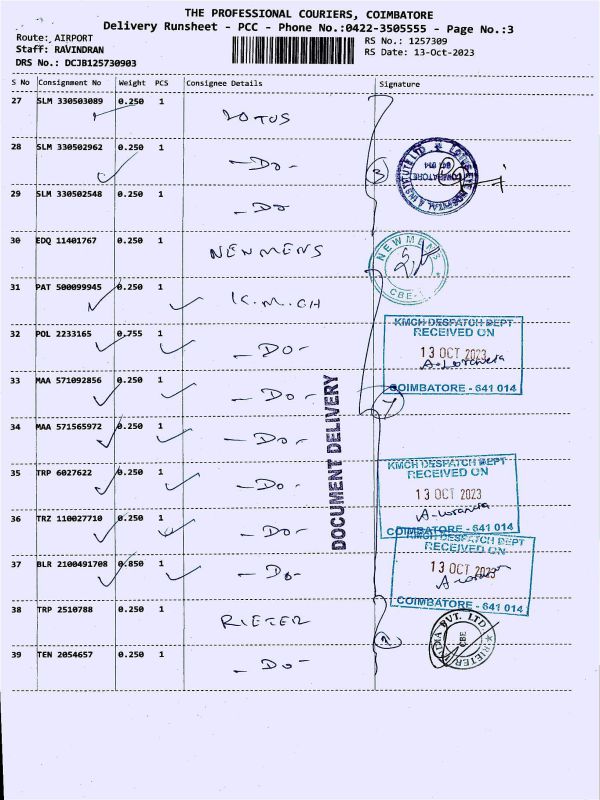 THE PROFESSIONAL COURIERS, COIMBATORE
Delivery Runsheet - PCC - Phone No.:0422-3505555 - Page No.:3
Route: AIRPORT
RS No.: 1257309
Staff: RAVINDRAN
RS Date: 13-Oct-2023
DRS No.: DCJB125730903
S No Consignment No Weight PCS Consignee Details Signature
27 SLM 330503089 0.250 1 LOTUS
28 SLM 330502962 0.250 1 - Do -
LOTUS EYE HOSPITAL & INSTITUTE LTD
COIMBATORE
641 014
3
29 SLM 330502548 0.250 1 - Do
30 EDQ 11401767 0.250 1 NEWMENS
NEWMENS
CBE-1
31 PAT 500099945 0.250 1 K.M.CH
32 POL 2233165 0.755 1 - Do -
KMCH DESPATCH DEPT
RECEIVED ON
13 OCT 2023
COIMBATORE - 641 014
33 MAA 571092856 0.250 1 - Do -
7
DOCUMENT DELIVERY
34 MAA 571565972 0.250 1 - Do -
35 TRP 6027622 0.250 1 - Do -
KMCH DESPATCH DEPT
RECEIVED ON
13 OCT 2023
COIMBATORE - 641 014
36 TRZ 110027710 0.250 1 - Do -
37 BLR 2100491708 0.850 1 - Do -
KMCH DESPATCH DEPT
RECEIVED ON
13 OCT 2023
COIMBATORE - 641 014
38 TRP 2510788 0.250 1 RIETER
2
RIETER INDIA PVT. LTD
CBE
39 TEN 2054657 0.250 1 - Do -